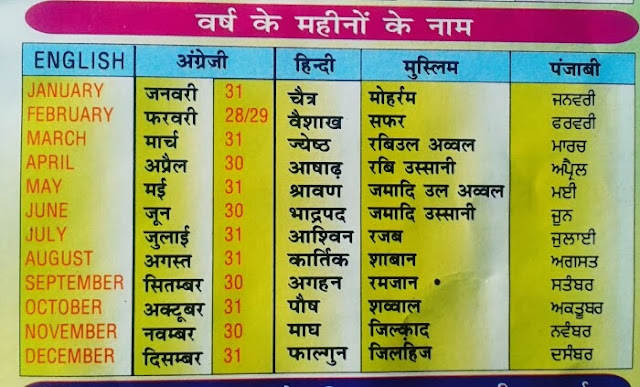 वर्ष के महीनों के नाम
ENGLISH अंग्रेजी हिन्दी मुस्लिम पंजाबी
JANUARY जनवरी 31 चैत्र मोहर्रम ਜਨਵਰੀ
FEBRUARY फरवरी 28/29 वैशाख सफर ਫਰਵਰੀ
MARCH मार्च 31 ज्येष्ठ रबिउल अव्वल ਮਾਰਚ
APRIL अप्रैल 30 आषाढ़ रबि उस्सानी ਅਪ੍ਰੈਲ
MAY मई 31 श्रावण जमादि उल अव्वल ਮਈ
JUNE जून 30 भाद्रपद जमादि उस्सानी ਜੂਨ
JULY जुलाई 31 आश्विन रजब ਜੁਲਾਈ
AUGUST अगस्त 31 कार्तिक शाबान ਅਗਸਤ
SEPTEMBER सितम्बर 30 अगहन रमजान ਸਤੰਬਰ
OCTOBER अक्टूबर 31 पौष शव्वाल ਅਕਤੂਬਰ
NOVEMBER नवम्बर 30 माघ जिल्काद ਨਵੰਬਰ
DECEMBER दिसम्बर 31 फाल्गुन जिलहिज ਦਸੰਬਰ